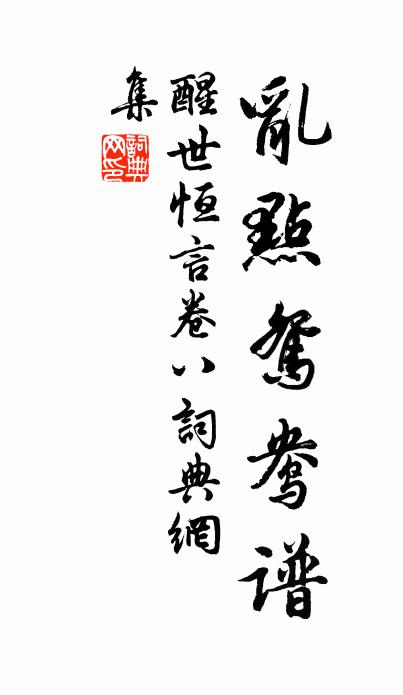 亂點鴛鴦谱
醒世恒言卷八詞典網
集
詞典网印